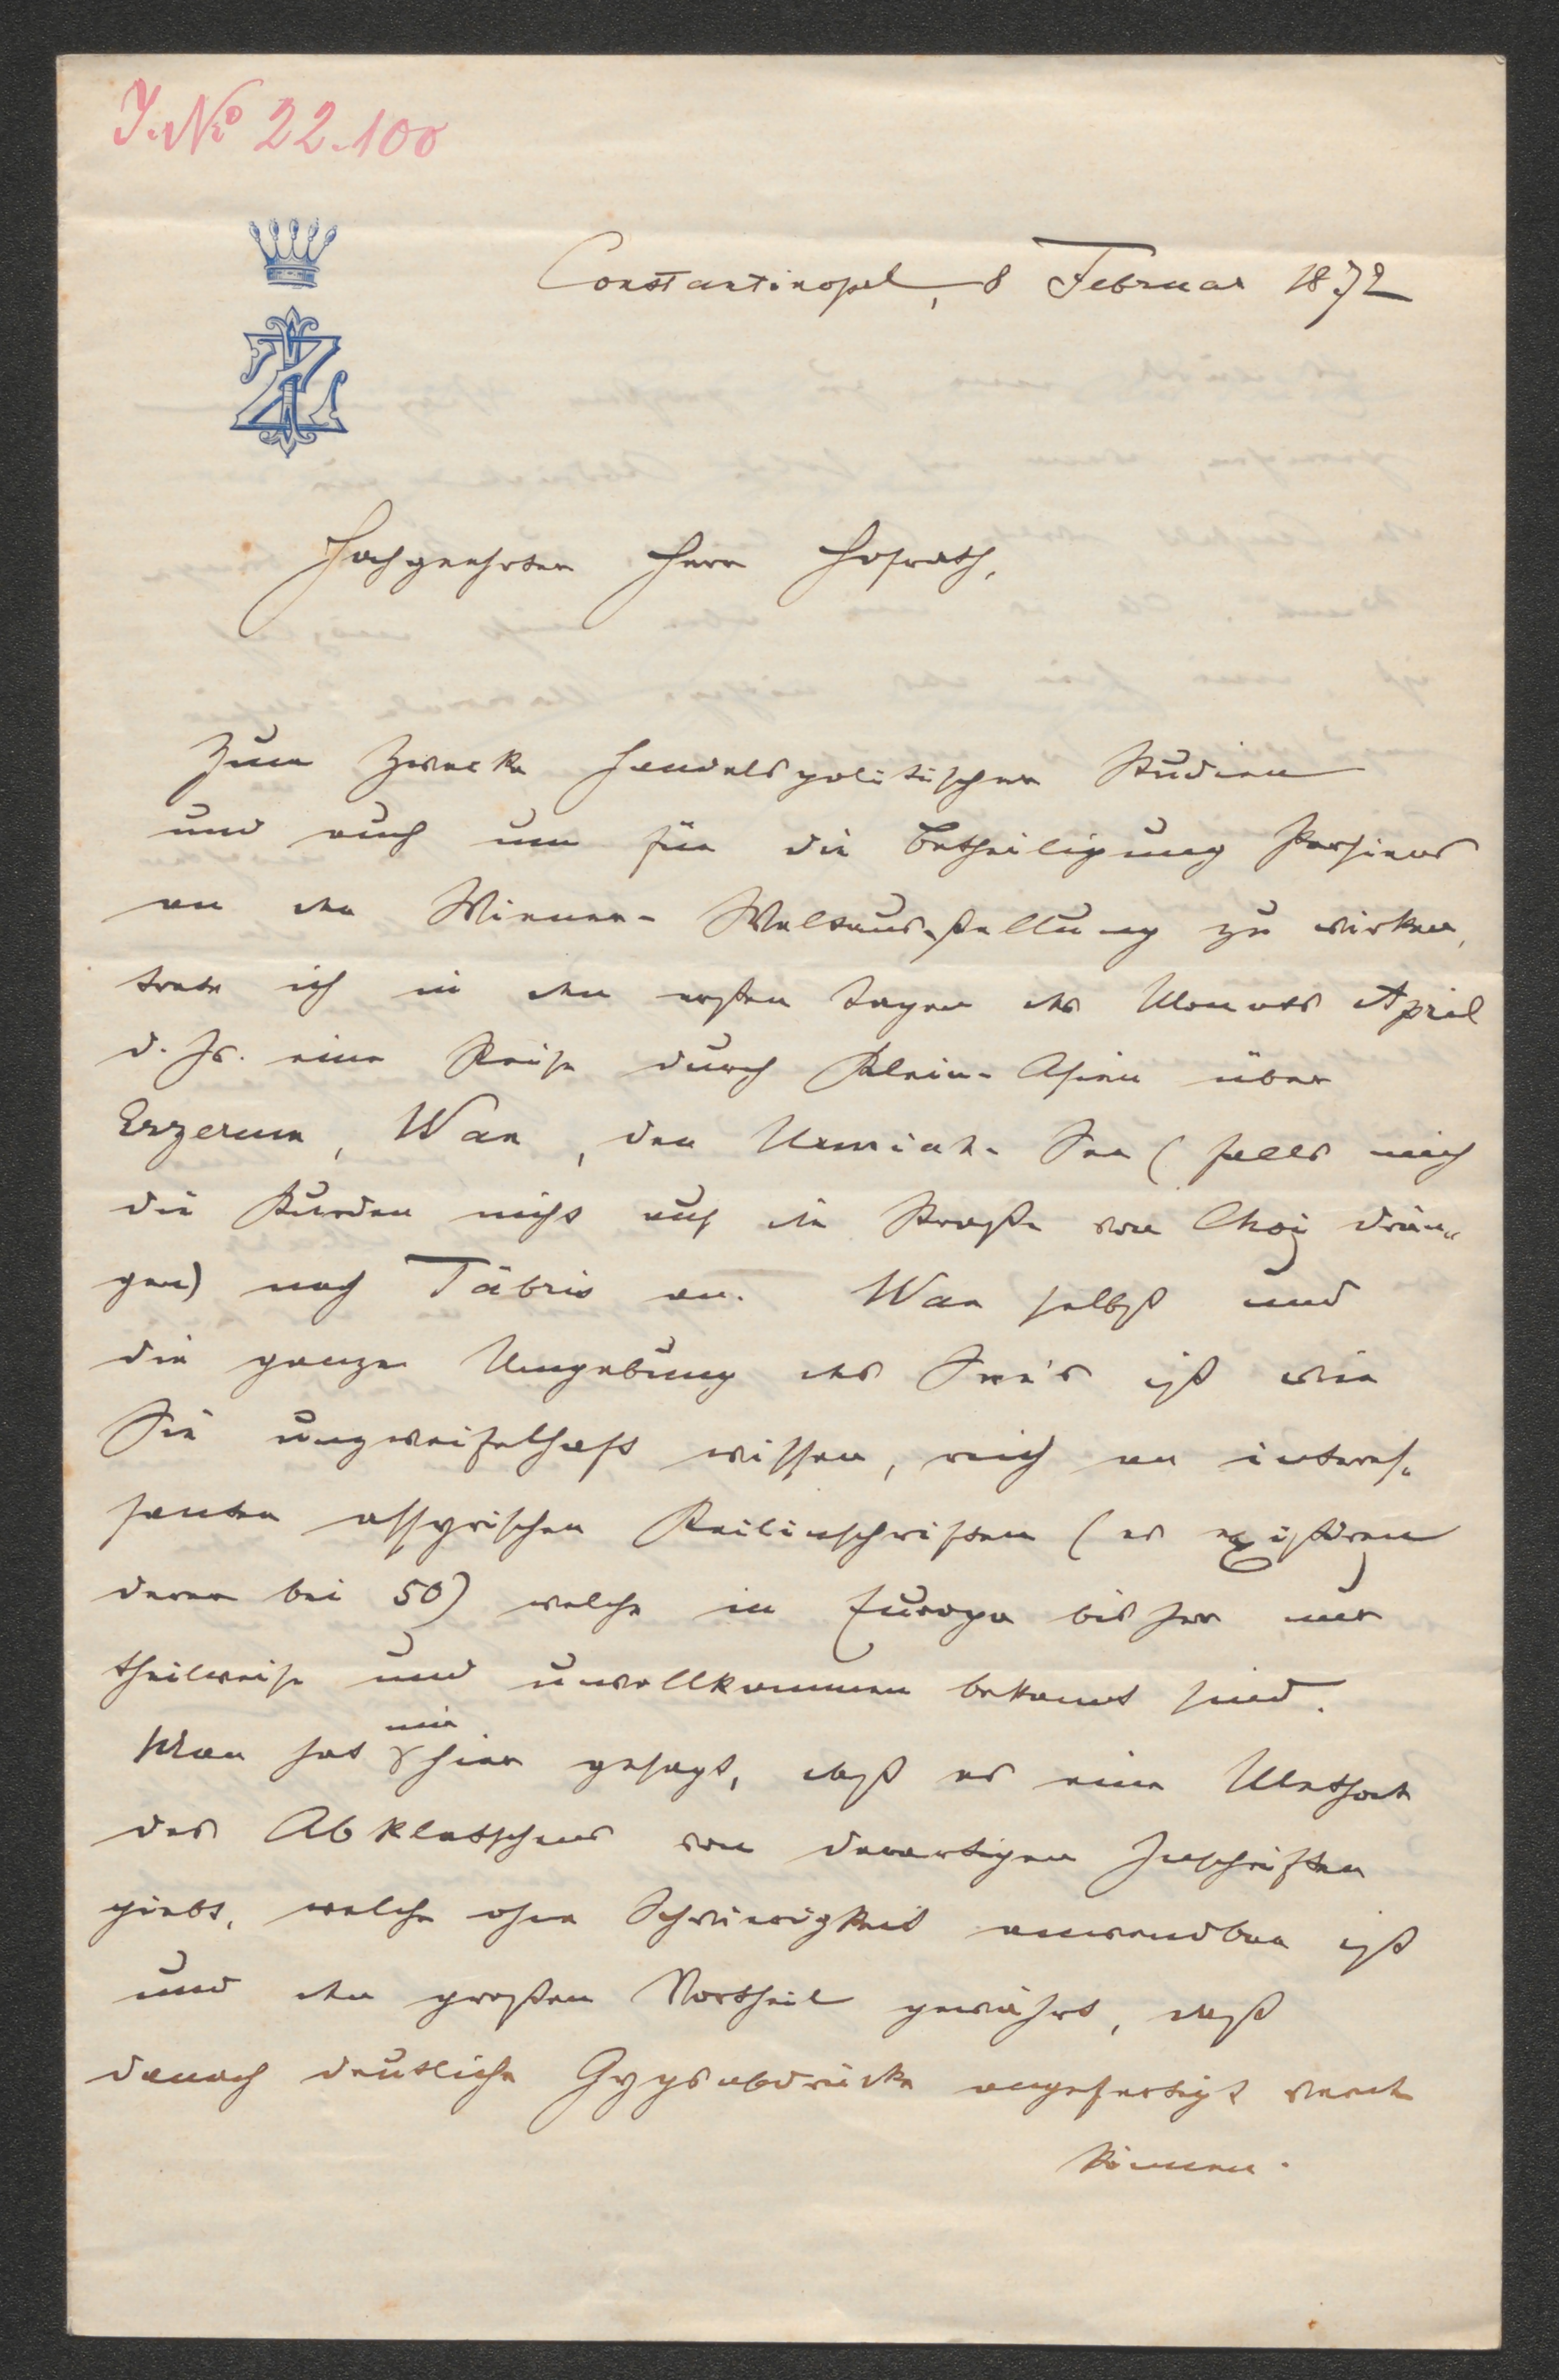 J. No 22.100
Constantinopel, 8 Februar 1872
Hochgeehrter Herr Hofrath,
Zum Zwecke handelspolitischer Studien
und auch um für die Betheiligung Persiens
an der Wiener-Weltausstellung zu wirken,
trete ich in den ersten Tagen des Monats April
d. Js. eine Reise durch Klein-Asien über
Erzerum, Wan, den Urmiah-See (falls mich
die Kurden nicht auf die Straße von Choi drän„
gen) nach Täbris an. Wan selbst und
die ganze Umgebung des See's ist wie
Sie unzweifelhaft wissen, reich an interes„
santen assyrischen Keilinschriften (es existiren
deren bei 50) welche in Europa bisher nur
theilweise und unvollkommen bekannt sind.
Man hat mir hier gesagt, daß es eine Methode
des Abklatschens von derartigen Inschriften
giebt, welche ohne Schwierigkeit anwendbar ist
und den großen Vortheil gewährt, daß
danach deutliche Gypsabdrücke angefertigt werden
können.